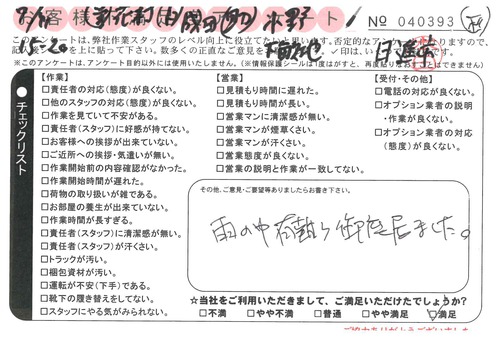 お客様
アンケート
No 040393
このアンケートは、弊社作業スタッフのレベル向上に役立てたいと思います。否定的なアンケート
※このアンケートは、アンケート目的以外には使用いたしません。
チェックリスト
【作業】
□責任者の対応(態度)が良くない。
□他のスタッフの対応(態度)が良くない。
□作業を見ていて不安がある。
□責任者(スタッフ)に好感が持てない。
□お客様への挨拶が出来ていない。
□ご近所への挨拶・気遣いが無い。
□作業開始前の内容確認がなかった。
□作業開始時間が遅れた。
□荷物の取り扱いが雑である。
□お部屋の養生が出来ていない。
□作業時間が長すぎる。
□責任者(スタッフ)に清潔感が無い。
□責任者(スタッフ)が汗くさい。
□トラックが汚い。
□梱包資材が汚い。
□運転が不安(下手)である。
□靴下の履き替えをしてない。
□スタッフにやる気がみられない。
【営業】
□見積もり時間に遅れた。
□見積もり時間が長い。
□営業マンに清潔感が無い。
□営業マンが煙草くさい。
□営業マンが汗くさい。
□営業態度が良くない。
□営業の説明と作業が一致してない。
【受付・その他】
□電話の対応が良くない。
□オプション業者の説明
・作業が良くない。
□オプション業者の対応
(態度)が良くない。
その他、ご意見・ご要望等ありましたらお書き下さい。
雨の中有難う御座居ました。
☆当社をご利用いただきまして、ご満足いただけたでしょうか?
□不満 □やや不満 □普通 □やや満足 □満足
ご協力ありがとうございました